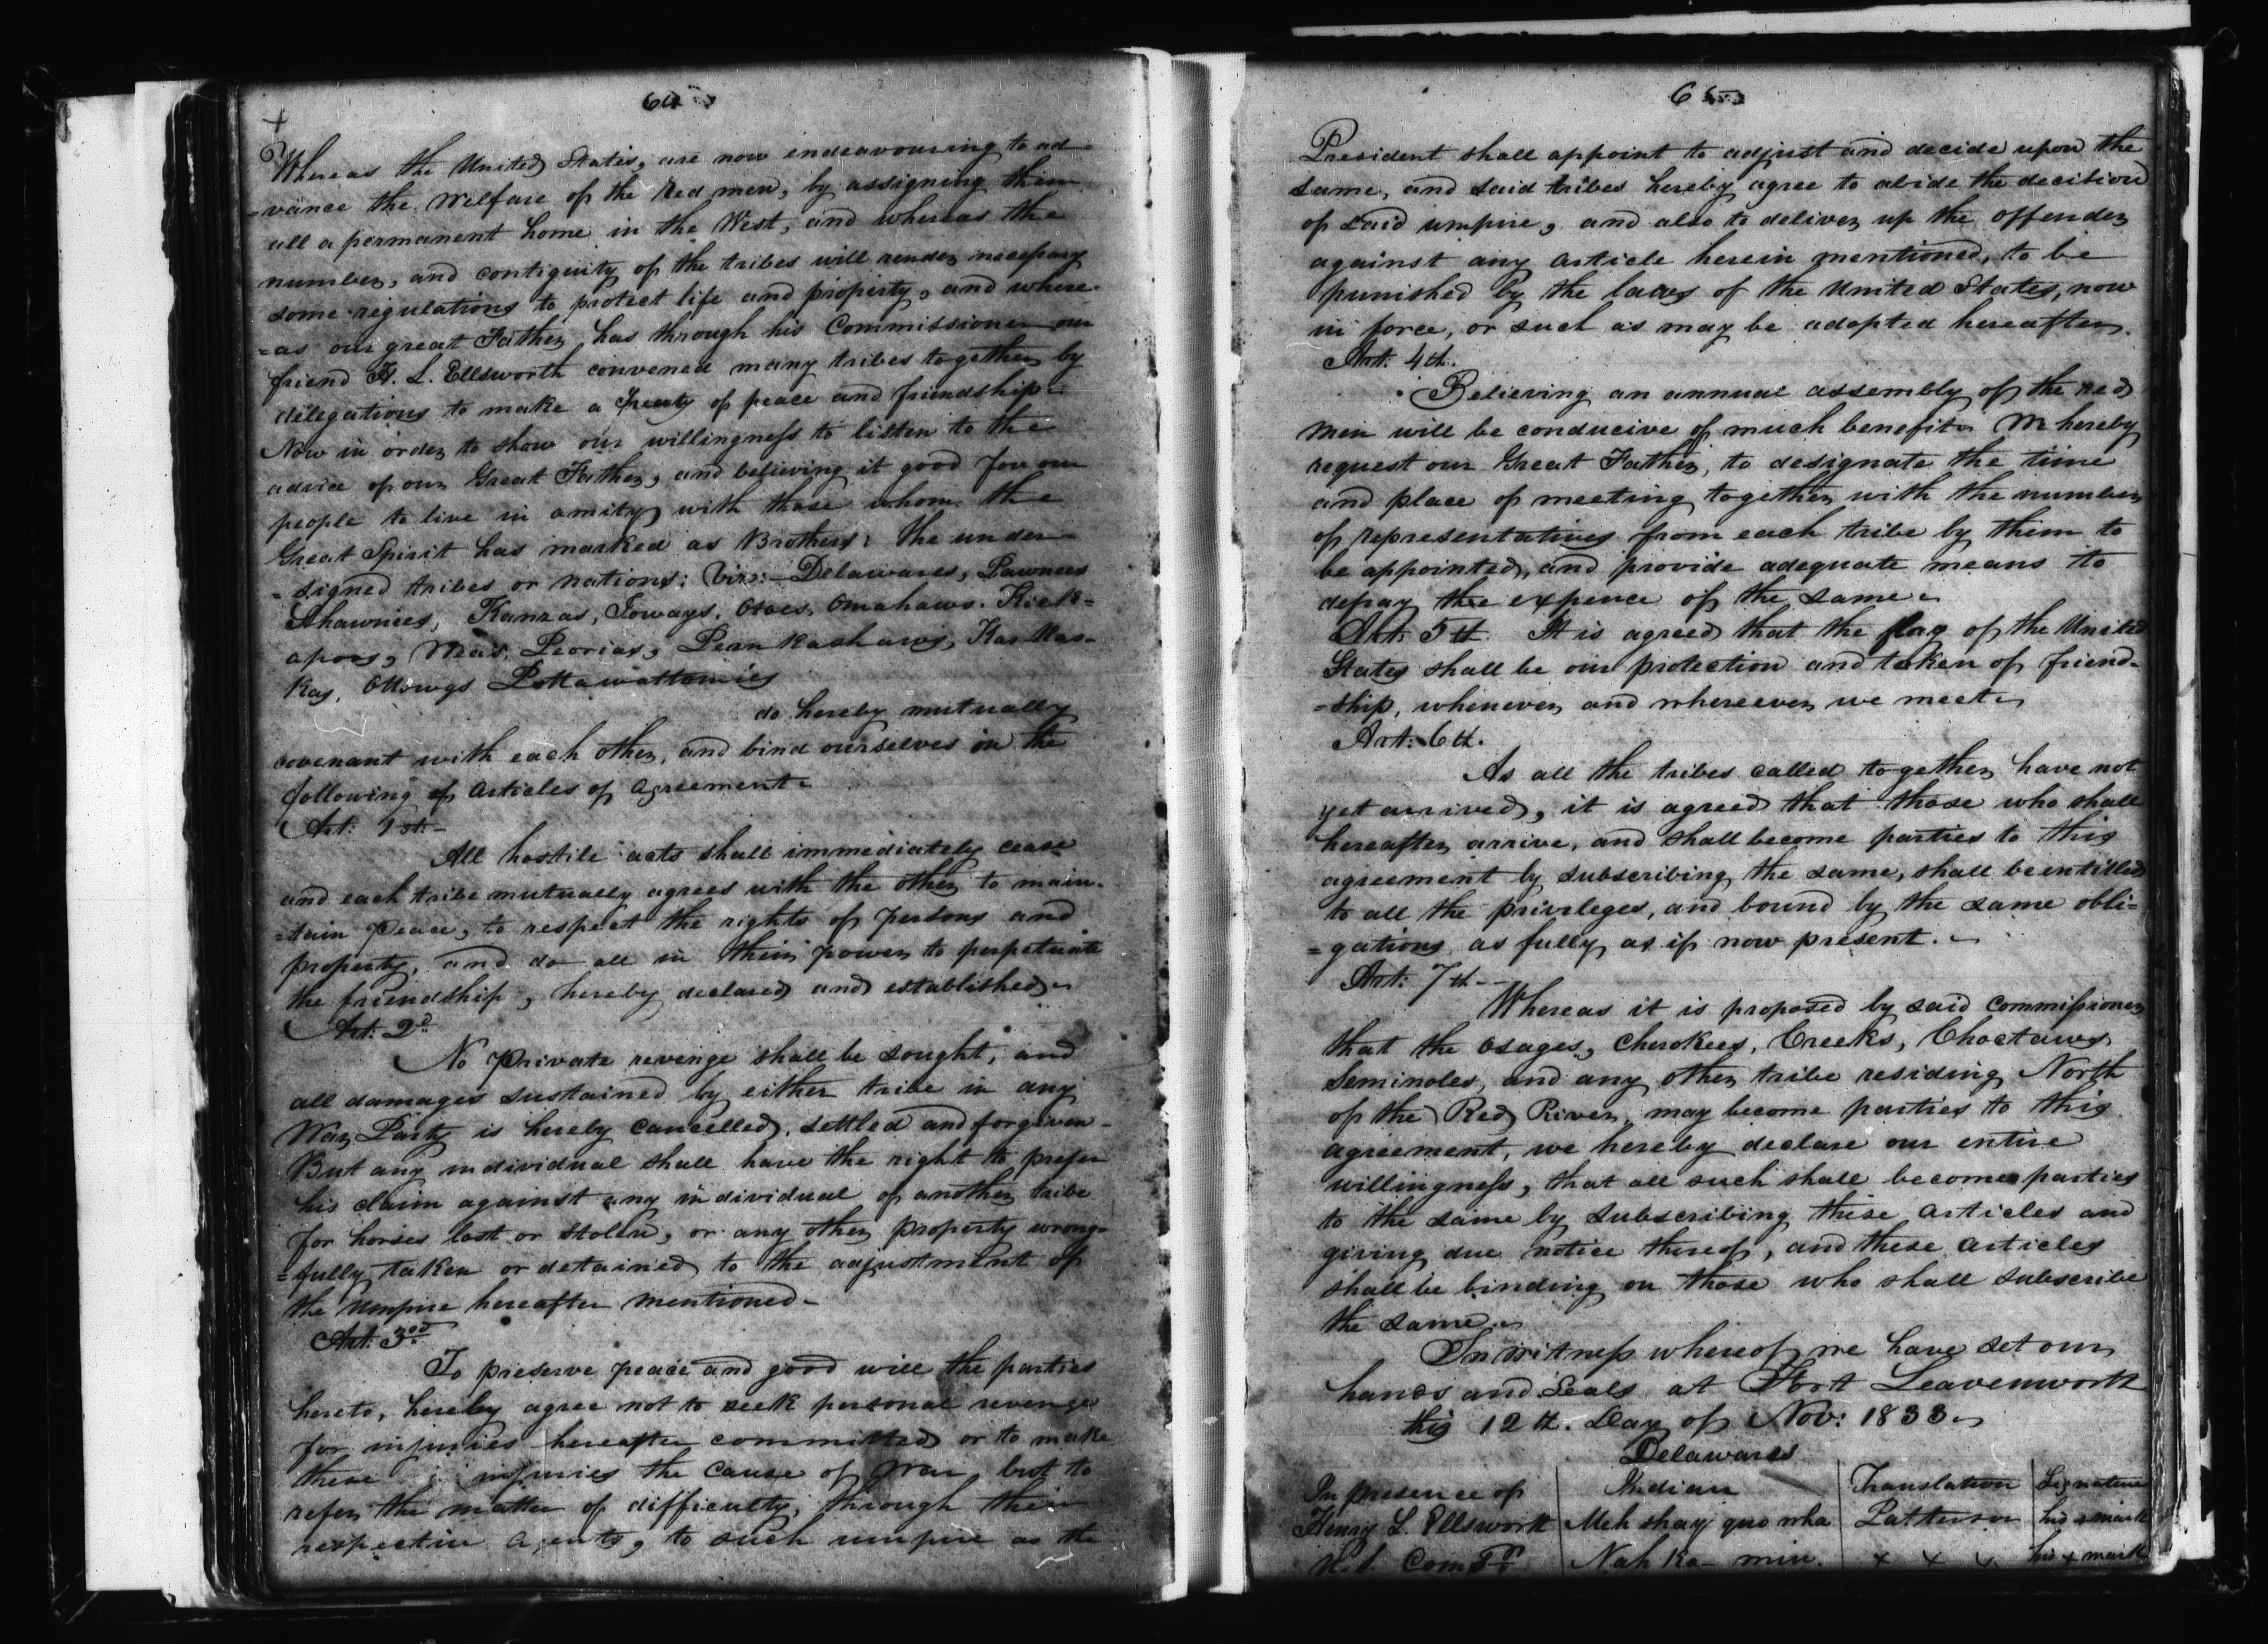 64
Whereas the United States, are now endeavouring to ad-
=vance the welfare of the Red men, by assigning them
all a permanent home in the West, and whereas the
number, and contiguity of the tribes will render necessary
some regulations to protect life and property, and where-
=as our great Father has through his Commissioner our
friend H. L. Ellsworth convened many tribes together by
delegations to make a Treaty of peace and friendship
Now in order to show our willingness to listen to the
advice of our Great Father, and believing it good for our
people to live in amity with those whom the
Great Spirit has marked as Brothers; the under-
=signed tribes or nations: Viz:- Delawares, Pawnees
Shawnees, Kanzas, Ioways, Otoes, Omahaws, Kick-
apoos, Weas, Peorias, Peankashaws, Kaskas-
kas, Ottowas Pottawattomies
do hereby mutually
covenant with each other, and bind ourselves in the
following of articles of agreement
Art: 1st.-
All hostile acts shall immediately cease
and each tribe mutually agrees with the other to main-
=tain peace, to respect the rights of persons and
property, and do all in their power to perpetuate
the friendship, hereby declared and established
Art. 2d
No private revenge shall be sought, and
all damages sustained by either tribe in any
War Party is hereby cancelled, settled and forgiven-
But any individual shall have the right to prefer
his claim against any individual of another tribe
for horses lost or stolen, or any other property wrong=
=fully taken or detained to the adjustment of
the umpire hereafter mentioned-
Art: 3rd
To preserve peace and good will the parties
hereto, hereby agree not to seek personal revenge
for injuries hereafter committed or to make
these injuries the cause of War, but to
refer the matter of difficulty, through their
respective agents, to such umpire as the
65
President shall appoint to adjust and decide upon the
same, and said tribes hereby agree to abide the decision
of said umpire, and also to deliver up the offender
against any article herein mentioned, to be
punished by the laws of the United States, now
in force, or such as may be adopted hereafter.
Art: 4th.
Believing an annual assembly of the red
men will be conducive of much benefit We hereby
request our Great Father, to designate the time
and place of meeting together with the number
of representatives from each tribe by them to
be appointed, and provide adequate means to
defray the expence of the same
Art: 5th It is agreed that the flag of the United
States shall be our protection and token of friend-
=ship, whenever and whereever we meet
Art: 6th.
As all the tribes called together have not
yet arrived, it is agreed that those who shall
hereafter arrive, and shall become parties to this
agreement by subscribing the same, shall be entitled
to all the privileges, and bound by the same obli=
=gations as fully as if now present.
Art: 7th-
Whereas it is proposed by said Commissioner
that the Osages, Cherokees, Creeks, Choctaws
Seminoles, and any other tribe residing North
of the Red River, may become parties to this
agreement, we hereby declare our entire
willingness, that all such shall become parties
to the same by subscribing these articles and
giving due notice thereof, and these articles
shall be binding on those who shall subscribe
the same
In witness whereof we have set our
hands and seals at Fort Leavenworth
this 12th. Day of Nov: 1833
Delawares
In presence of | Indian | Translation | Signature
Henry L. Ellsworth | Meh shay quo wha | Patterson | his x mark
U. S. Comsr. | Nah Ko- min. | x x x | his x mark